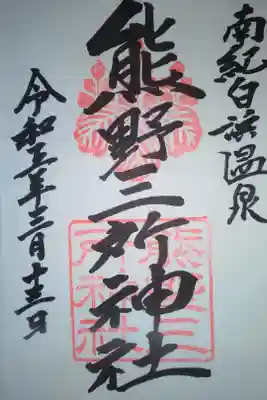 南紀白浜温泉
熊野三所神社
令和五年三月十三日